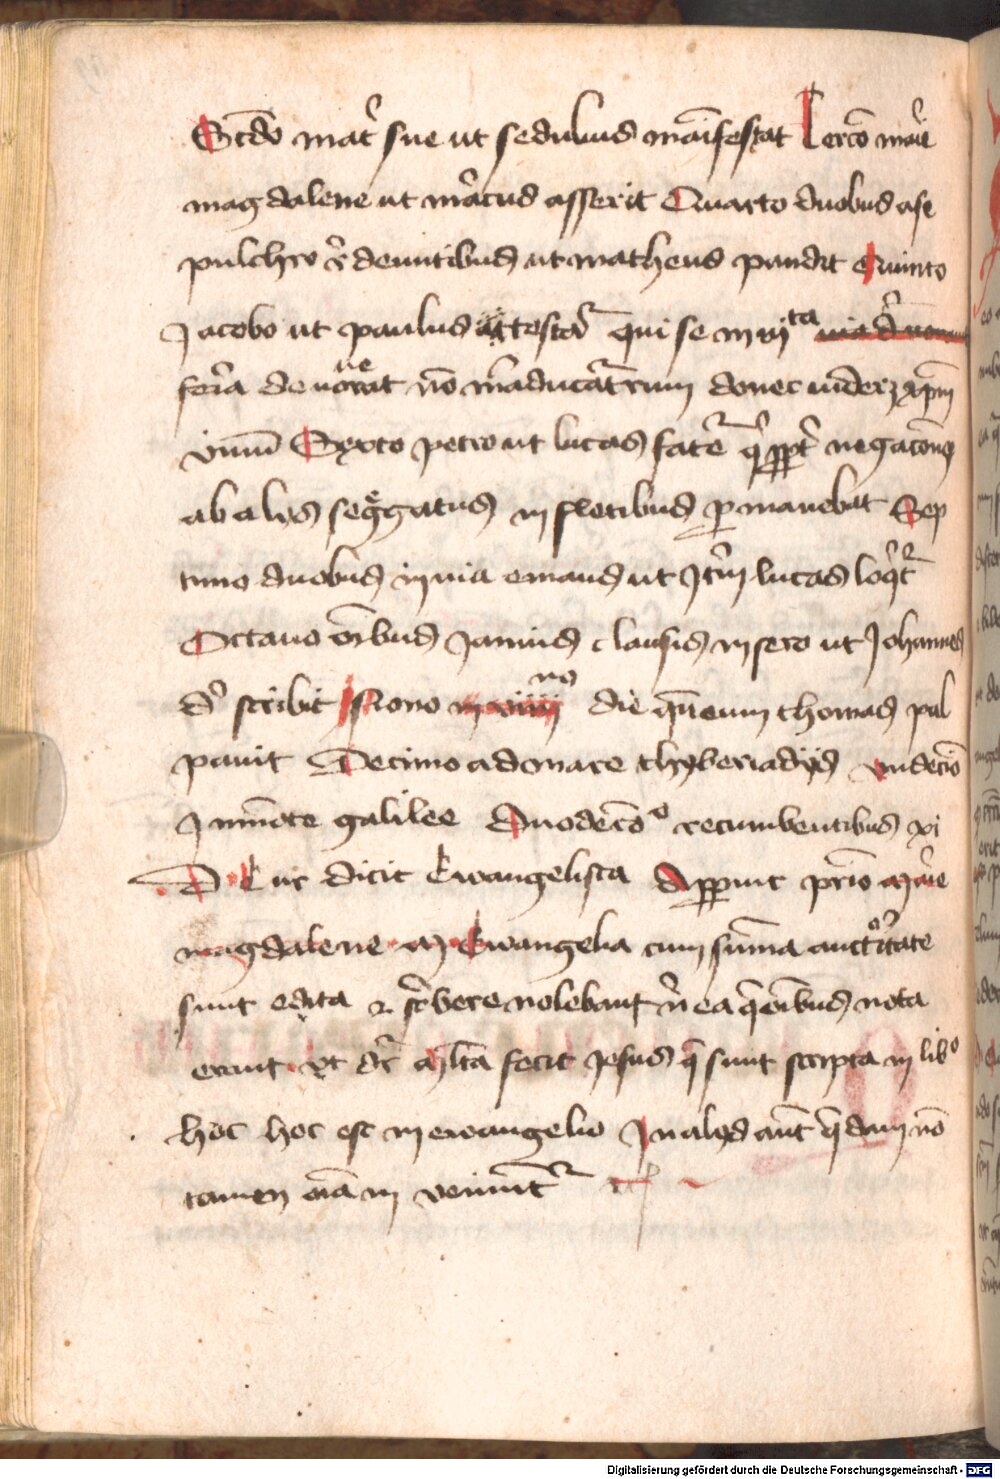 Scd̄o mat̉ sue ut sedulius māifestat Tercō māie
magdalene ut m̄arcus asserit Quarto duobus ase
pulchro r̄deuntibus ut matheus pandit Quinto
Jacobo ut paulus attestat̉ qui se in vita
feria deuouerat nō māducat̉um donec uideret xp̄m
viuū Sexto petro ut lucas fatet̉ q̉ ꝓpt̉ negacōem
ab alijs seg̉gatus in fletibus ꝑmanebat Sep
timo duobus in uia emaus ut Jt̄m lucas loq̉t̉
Octauo oībus Januis clausis in sero ut Johannes
d̉ scribit Nono no die qn̄ eum thomas pal
pauit Decimo ad mare thyberiadis vndecīo
In mōte galilee Duodecīo recumbentibus xi
Cur dicit Ewangelista Apparuit prīo Marie
magdalene Ewangelia cum sūma auctoītate
sunt edita scᷤbere nolebant n̄ ea q̄ oībus nota
erant vt dr̄ Mlta fecit Jesus q̄ sunt scripta in libº
hoc hoc est in ewangelio In alijs aūt q̄dam nō
tamen oīa in veniūt̉